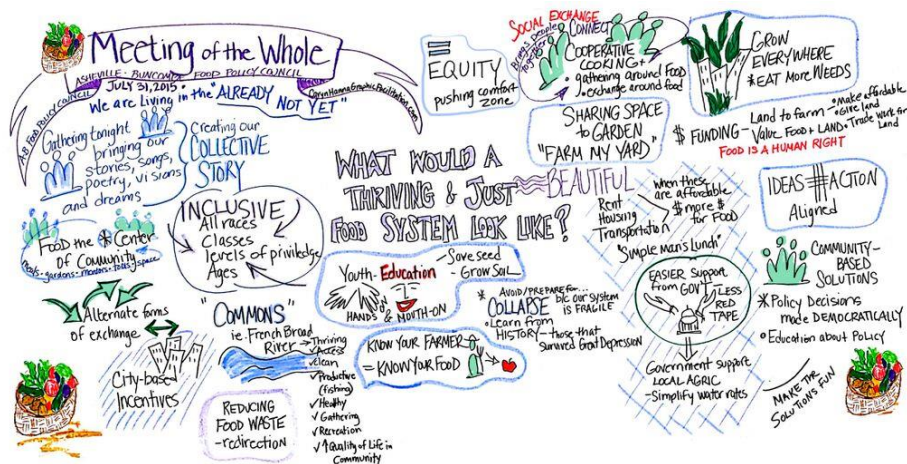 Meeting of the Whole
ASHEVILLE-BUNCOMBE FOOD POLICY COUNCIL
JULY 31, 2015
AB FOOD POLICY COUNCIL
We are living in the "ALREADY
NOT YET"
Gathering tonight
bringing our
stories, songs,
poetry, visions
and dreams
Creating our
COLLECTIVE
STORY
FOOD the Center
of Community
INCLUSIVE
All races
Classes
levels of priviledge
Ages
Alternate forms
of exchange
City-based
Incentives
"COMMONS"
ie. French Broad
River
→ Thriving
✓ Access
✓ Clean
✓ Productive
(fishing)
✓ Healthy
✓ Gathering
✓ Recreation
✓ ↑ Quality of Life in
Community
REDUCING
FOOD WASTE
- redirection
WHAT WOULD A
THRIVING & JUST
BEAUTIFUL
FOOD SYSTEM LOOK LIKE?
Youth - Education
- Save seed
- Grow Soil
HANDS & MOUTH-ON
KNOW YOUR FARMER
= KNOW YOUR FOOD
* AVOID/PREPARE for...
COLLAPSE b/c our system
is FRAGILE
• Learn from
HISTORY — those that
survived Great Depression
EQUITY
pushing comfort
zone
SOCIAL EXCHANGE
Brings people
together
CONNECT
COOPERATIVE
COOKING +
gathering around FOOD
• exchange around food
SHARING SPACE
to GARDEN
"FARM MY YARD"
GROW
EVERYWHERE
* EAT MORE WEEDS
$ FUNDING -
Land to farm
Value FOOD + LAND
• Make affordable
• Give land
• Trade work for
Land
FOOD IS A HUMAN RIGHT
Rent
Housing
Transportation
when these
are affordable
$ more $
for FOOD
"Simple Man's Lunch"
EASIER Support
from GOV'T
- LESS
RED
TAPE
Government support
LOCAL AGRIC
- Simplify water rates
IDEAS ACTION
Aligned
COMMUNITY-
BASED
SOLUTIONS
* Policy Decisions
made DEMOCRATICALLY
• Education about Policy
MAKE THE
SOLUTIONS FUN